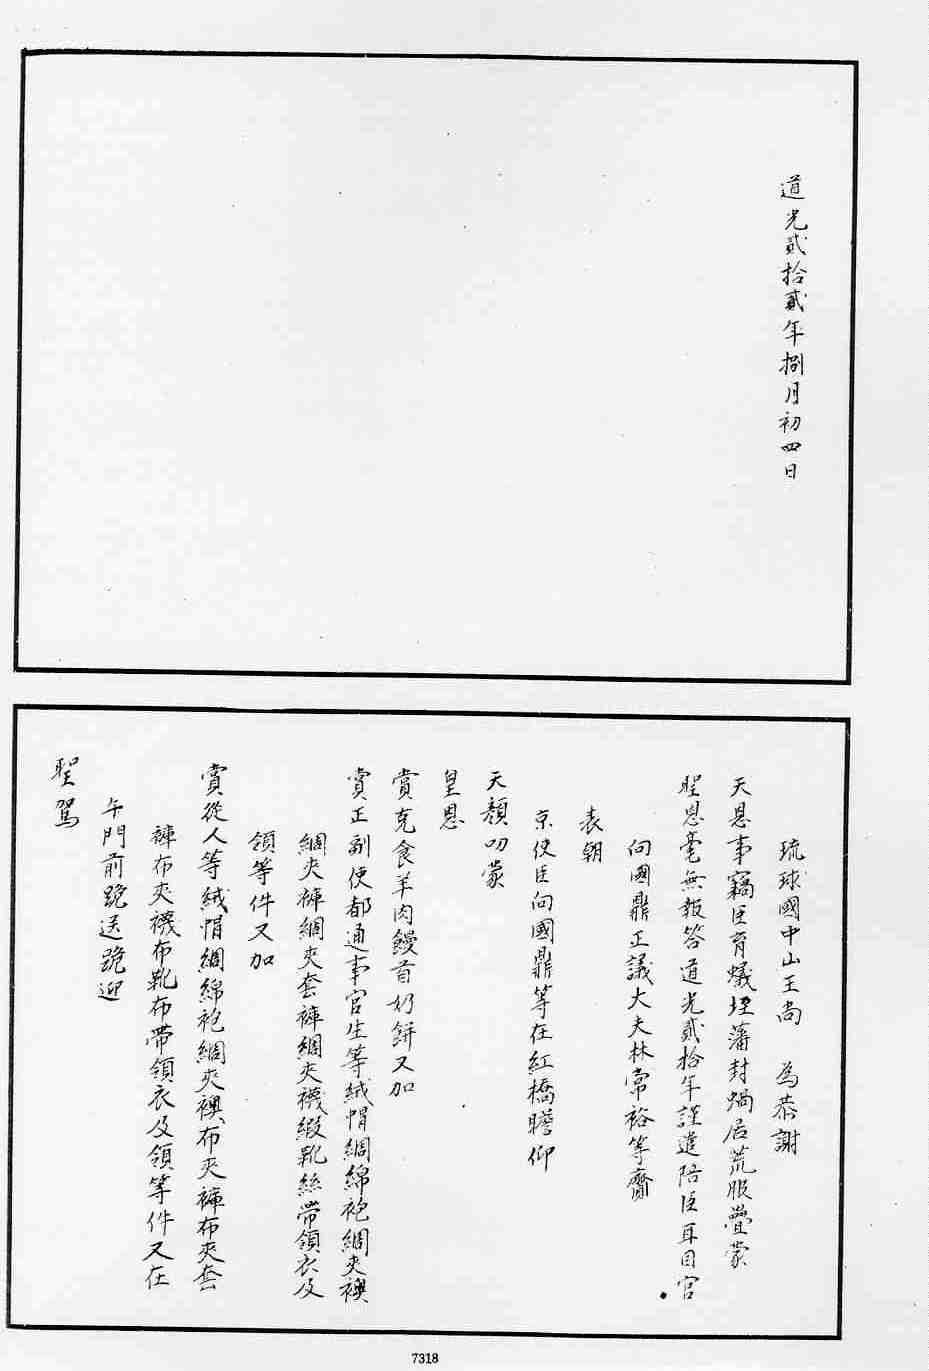 道光貳拾貳年捌月初四日
琉球國中山王尚　為恭謝
天恩事竊臣育蟻垤藩封蝸居荒服疊蒙
聖恩毫無報答道光貳拾年謹遣陪臣耳目官
向國鼎正議大夫林常裕等齎
表朝
京使臣向國鼎等在紅橋瞻仰
天顏叨蒙
皇恩
賞克食羊肉饅首奶餅又加
賞正副使都通事官生等絨帽綢綿袍綢夾襖
綢夾褲綢夾套褲綢夾襪緞靴絲帶領衣及
領等件又加
賞從人等絨帽綢綿袍綢夾襖布夾褲布夾套
褲布夾襪布靴布帶領衣及領等件又在
午門前跪送跪迎
聖駕
7318